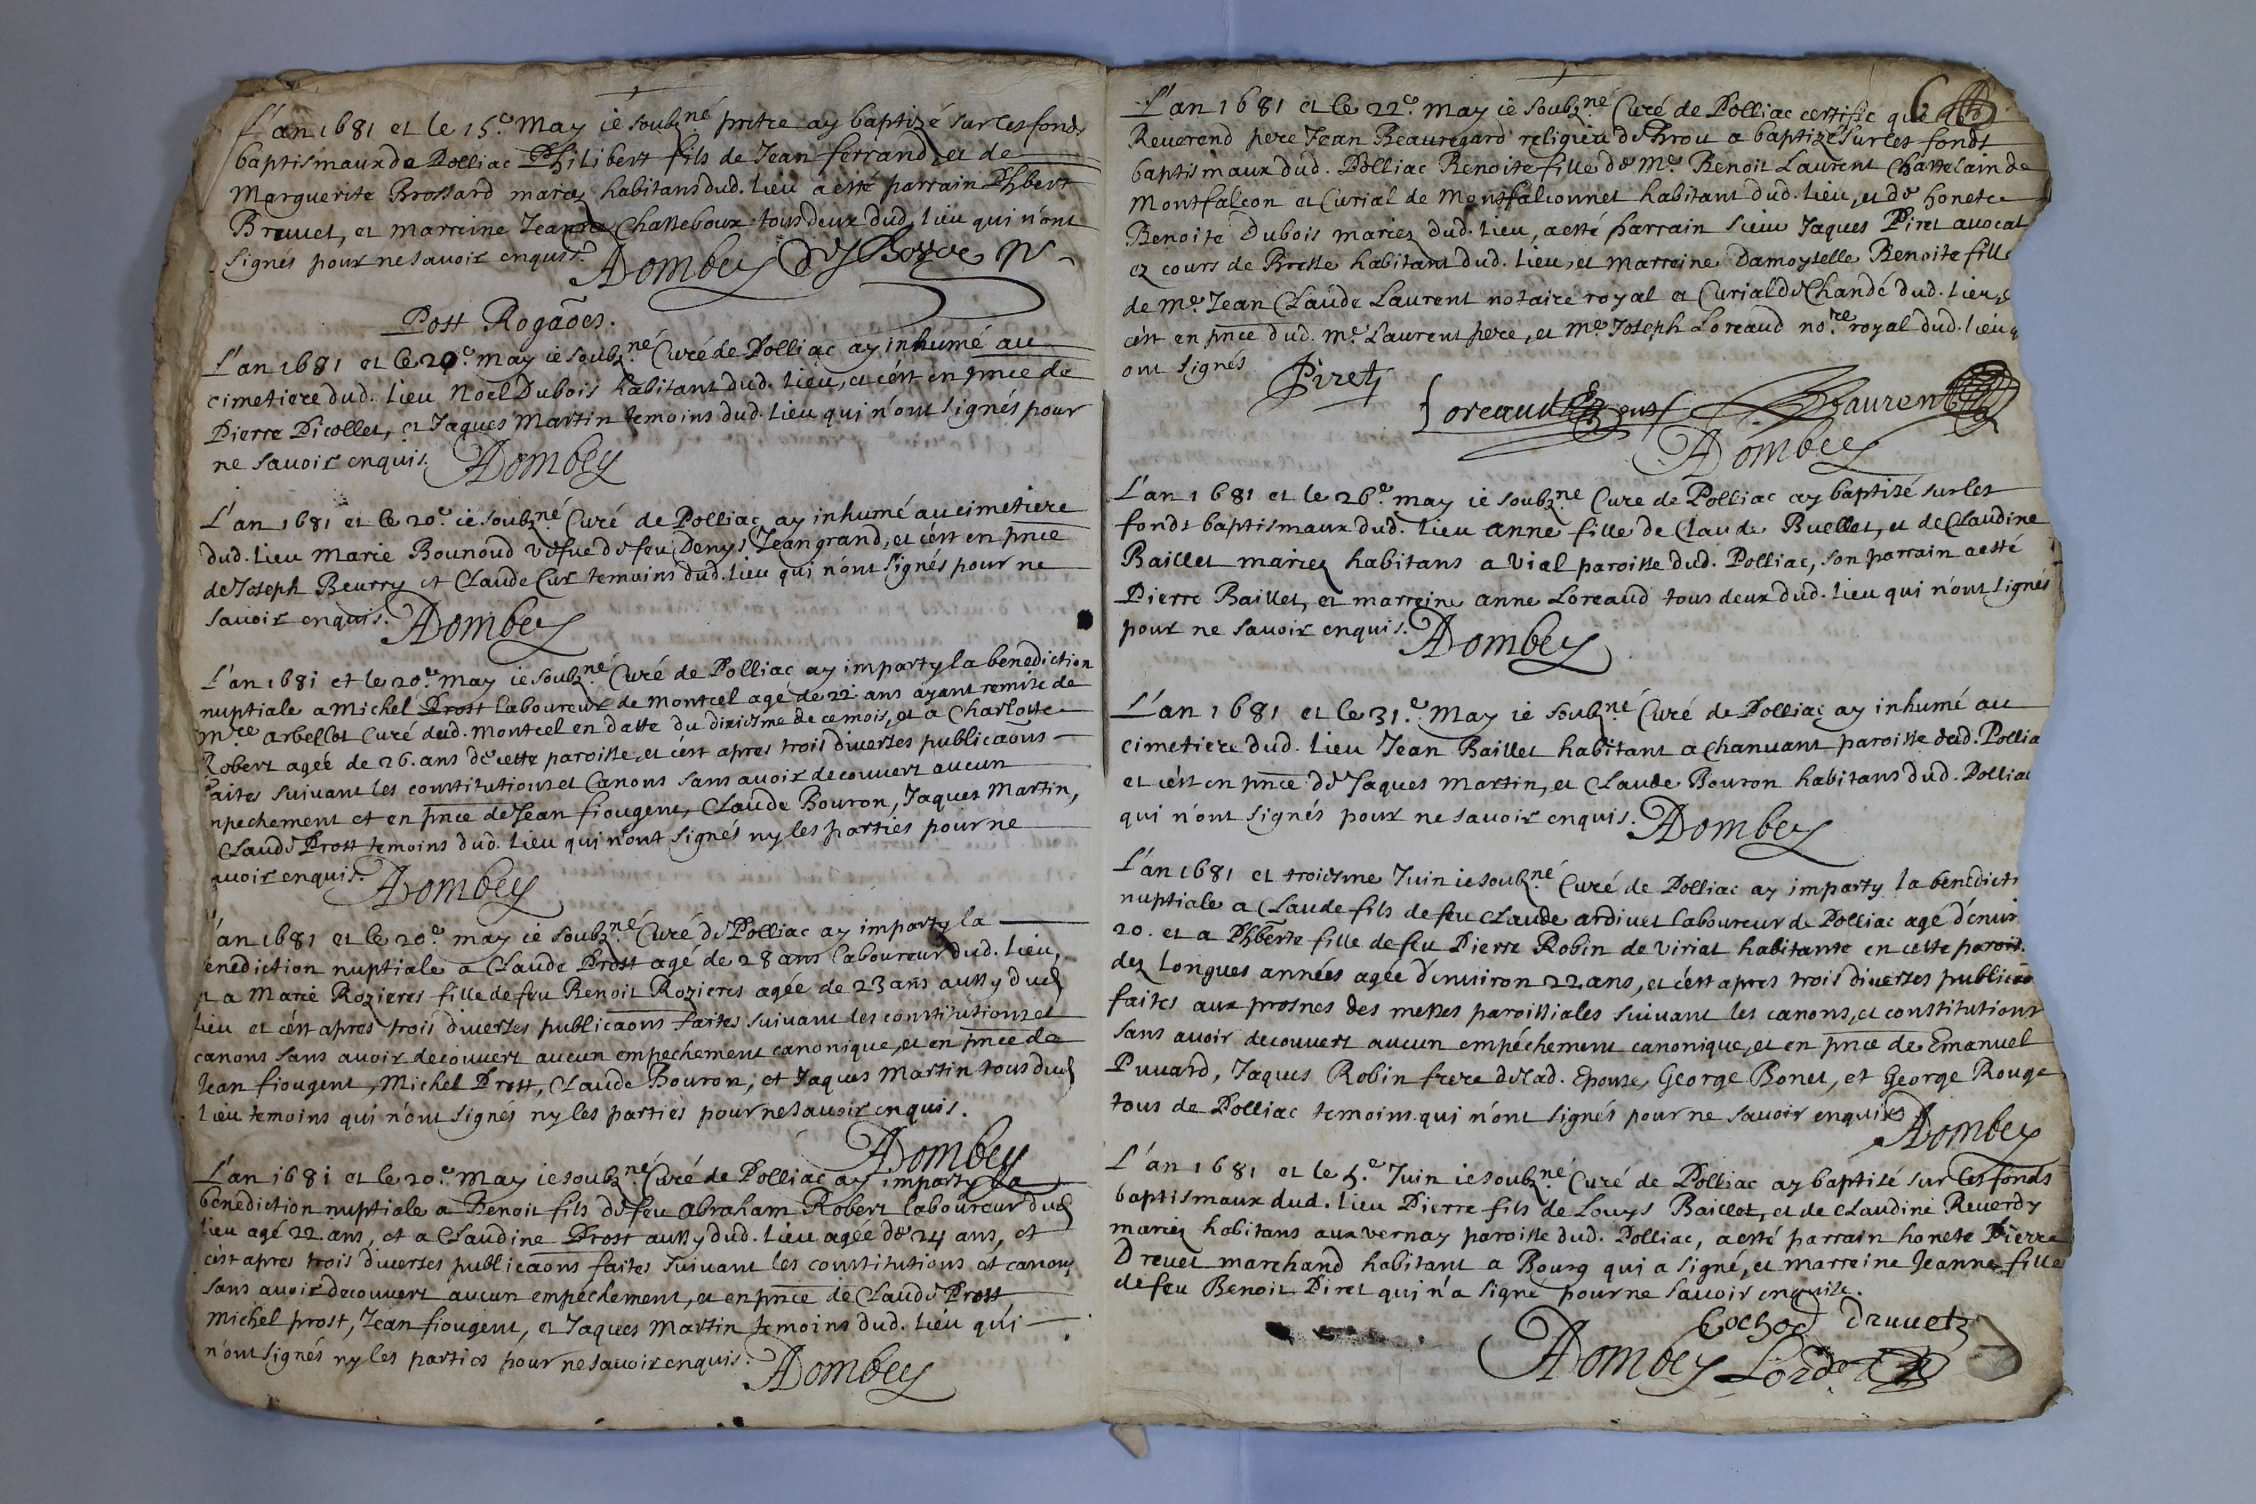 L'an 1681 et le 15.e May ie soubz.né prttre ay baptizé sur les fonds
baptismaux de Polliac Philibert fils de Jean ferrand, et de
Marguerite Brossard mariez habitans dud. lieu a esté parrain Phbert
Bruvet, et marreine Jeanne Chatteboux tous deux dud. lieu qui n'ont
signés pour ne savoir enquis. Dombey
Post Rogaoes.
L'an 1681 et le 20.e may ie soubz.né Curé de Polliac ay inhumé au
cimetiere dud. lieu Noel Dubois habitant dud. lieu, et c'est en pnce de
Pierre Picollet, et Jaques Martin temoins dud. lieu qui n'ont signés pour
ne savoir enquis. Dombey
L'an 1681 et le 20.e ie soubz.né Curé de Polliac ay inhumé au cimetiere
dud. lieu Marie Bounoud vefue de feu Denys Jeangrand, et c'est en pnce
de Joseph Beurry et Claude Cur temoins dud. lieu qui n'ont signés pour ne
savoir enquis. Dombey
L'an 1681 et le 20.e May ie soubz.né Curé de Polliac ay imparty la benediction
nuptiale a Michel Prost laboureur de Montcel agé de 22 ans ayant remise de
m.re arbellot Curé dud. Montcel en datte du dixiesme de ce mois, et a Charlotte
Robert agée de 26. ans de cette paroisse, et c'est apres trois diverses publicaons
faites suivant les constitutions et Canons sans avoir decouvert aucun
npechement et en pnce de Jean fiougent, Claude Bouron, Jaques Martin,
Claude Prost temoins dud. lieu qui n'ont signés ny les parties pour ne
avoir enquis. Dombey
L'an 1681 et le 20.e may ie soubz.né Curé de Polliac ay imparty la
enediction nuptiale a Claude Prost agé de 28 ans laboureur dud. lieu,
et a Marie Rozieres fille de feu Benoit Rozieres agée de 23 ans aussy dud.
lieu et c'est apres trois diverses publicaons faites suivant les constitutions et
canons sans avoir decouvert aucun empechement canonique, et en pnce de
Jean fiougent, Michel Prost, Claude Bouron, et Jaques Martin tous dud.
lieu temoins qui n'ont signés ny les parties pour ne savoir enquis.
Dombey
L'an 1681 et le 20.e May ie soubz.né Curé de Polliac ay imparty la
benediction nuptiale a Benoit fils de feu abraham Robert laboureur dud.
lieu agé 22 ans, et a Claudine Prost aussy dud. lieu agée de 24 ans, et
c'est apres trois diverses publicaons faites suivant les constitutions et canons
sans avoir decouvert aucun empéchement, et en pnce de Claude Prost
Michel prost, Jean fiougent, et Jaques Martin temoins dud. lieu qui
n'ont signés ny les parties pour ne savoir enquis. Dombey
6
L'an 1681 et le 22.e may ie soubz.né Curé de Polliac certifie que
Reverend pere Jean Beauregard religieu de Brou a baptizé sur les fonds
baptismaux dud. Polliac Benoite fille de M.e Benoit Laurent Chattelain de
Montfalcon et Curial de Montfalconnet habitant dud. lieu, et de honete
Benoite Dubois mariez dud. lieu, a esté parrain sieur Jaques Piret avocat
ez cours de Bresse habitant dud. lieu, et marreine Damoyselle Benoite fille
de M.e Jean Claude Laurent notaire royal et Curial de Chandé dud. lieu,
c'est en pnce dud. M.e Laurent pere, et M.e Joseph Loreaud no.re royal dud. lieu
ont signés Piret
Loreaud Laurent
Dombey
L'an 1681 et le 26.e may ie soubz.né Curé de Polliac ay baptisé sur les
fonds baptismaux dud. lieu anne fille de Claude Buellet, et de Claudine
Baillet mariez habitans a Vial paroisse dud. Polliac, son parrain a esté
Pierre Baillet, et marreine anne Loreaud tous deux dud. lieu qui n'ont signés
pour ne savoir enquis. Dombey
L'an 1681 et le 31.e May ie soubz.né Curé de Polliac ay inhumé au
cimetiere dud. lieu Jean Baillet habitant a Chanvant paroisse dud. Pollia
et c'est en pnce de Jaques Martin, et Claude Bouron habitans dud. Polliac
qui n'ont signés pour ne savoir enquis. Dombey
L'an 1681 et troiesme Juin ie soubz.né Curé de Polliac ay imparty la benedicti
nuptiale a Claude fils de feu Claude ardivet laboureur de Polliac agé d'envir
20. et a Phberte fille de feu Pierre Robin de Viriat habitante en cette parois.
dez longues années agée d'environ 22 ans, et c'est apres trois diverses publicao
faites aux prosnes des messes paroissiales suivant les canons, et constitutions
sans avoir decouvert aucun empéchement canonique, et en pnce de Emanuel
Puvard, Jaques Robin frere de lad. Epouse, George Bonet, et George Rouge
tous de Polliac temoins qui n'ont signés pour ne savoir enquis
Dombey
L'an 1681 et le 5.e Juin ie soubz.né Curé de Polliac ay baptisé sur les fonds
baptismaux dud. lieu Pierre fils de Louys Baillet, et de Claudine Reverdy
mariez habitans aux vernay paroisse dud. Polliac, a esté parrain honete Pierre
Drevet marchand habitant a Bourg qui a signé, et marreine Jeanne fille
de feu Benoit Piret qui n'a signé pour ne savoir enquise.
Cochod Druvetz
Dombey